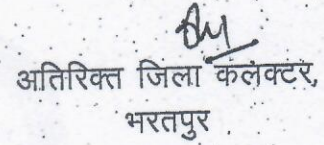 अतिरिक्त जिला कलक्टर,
भरतपुर